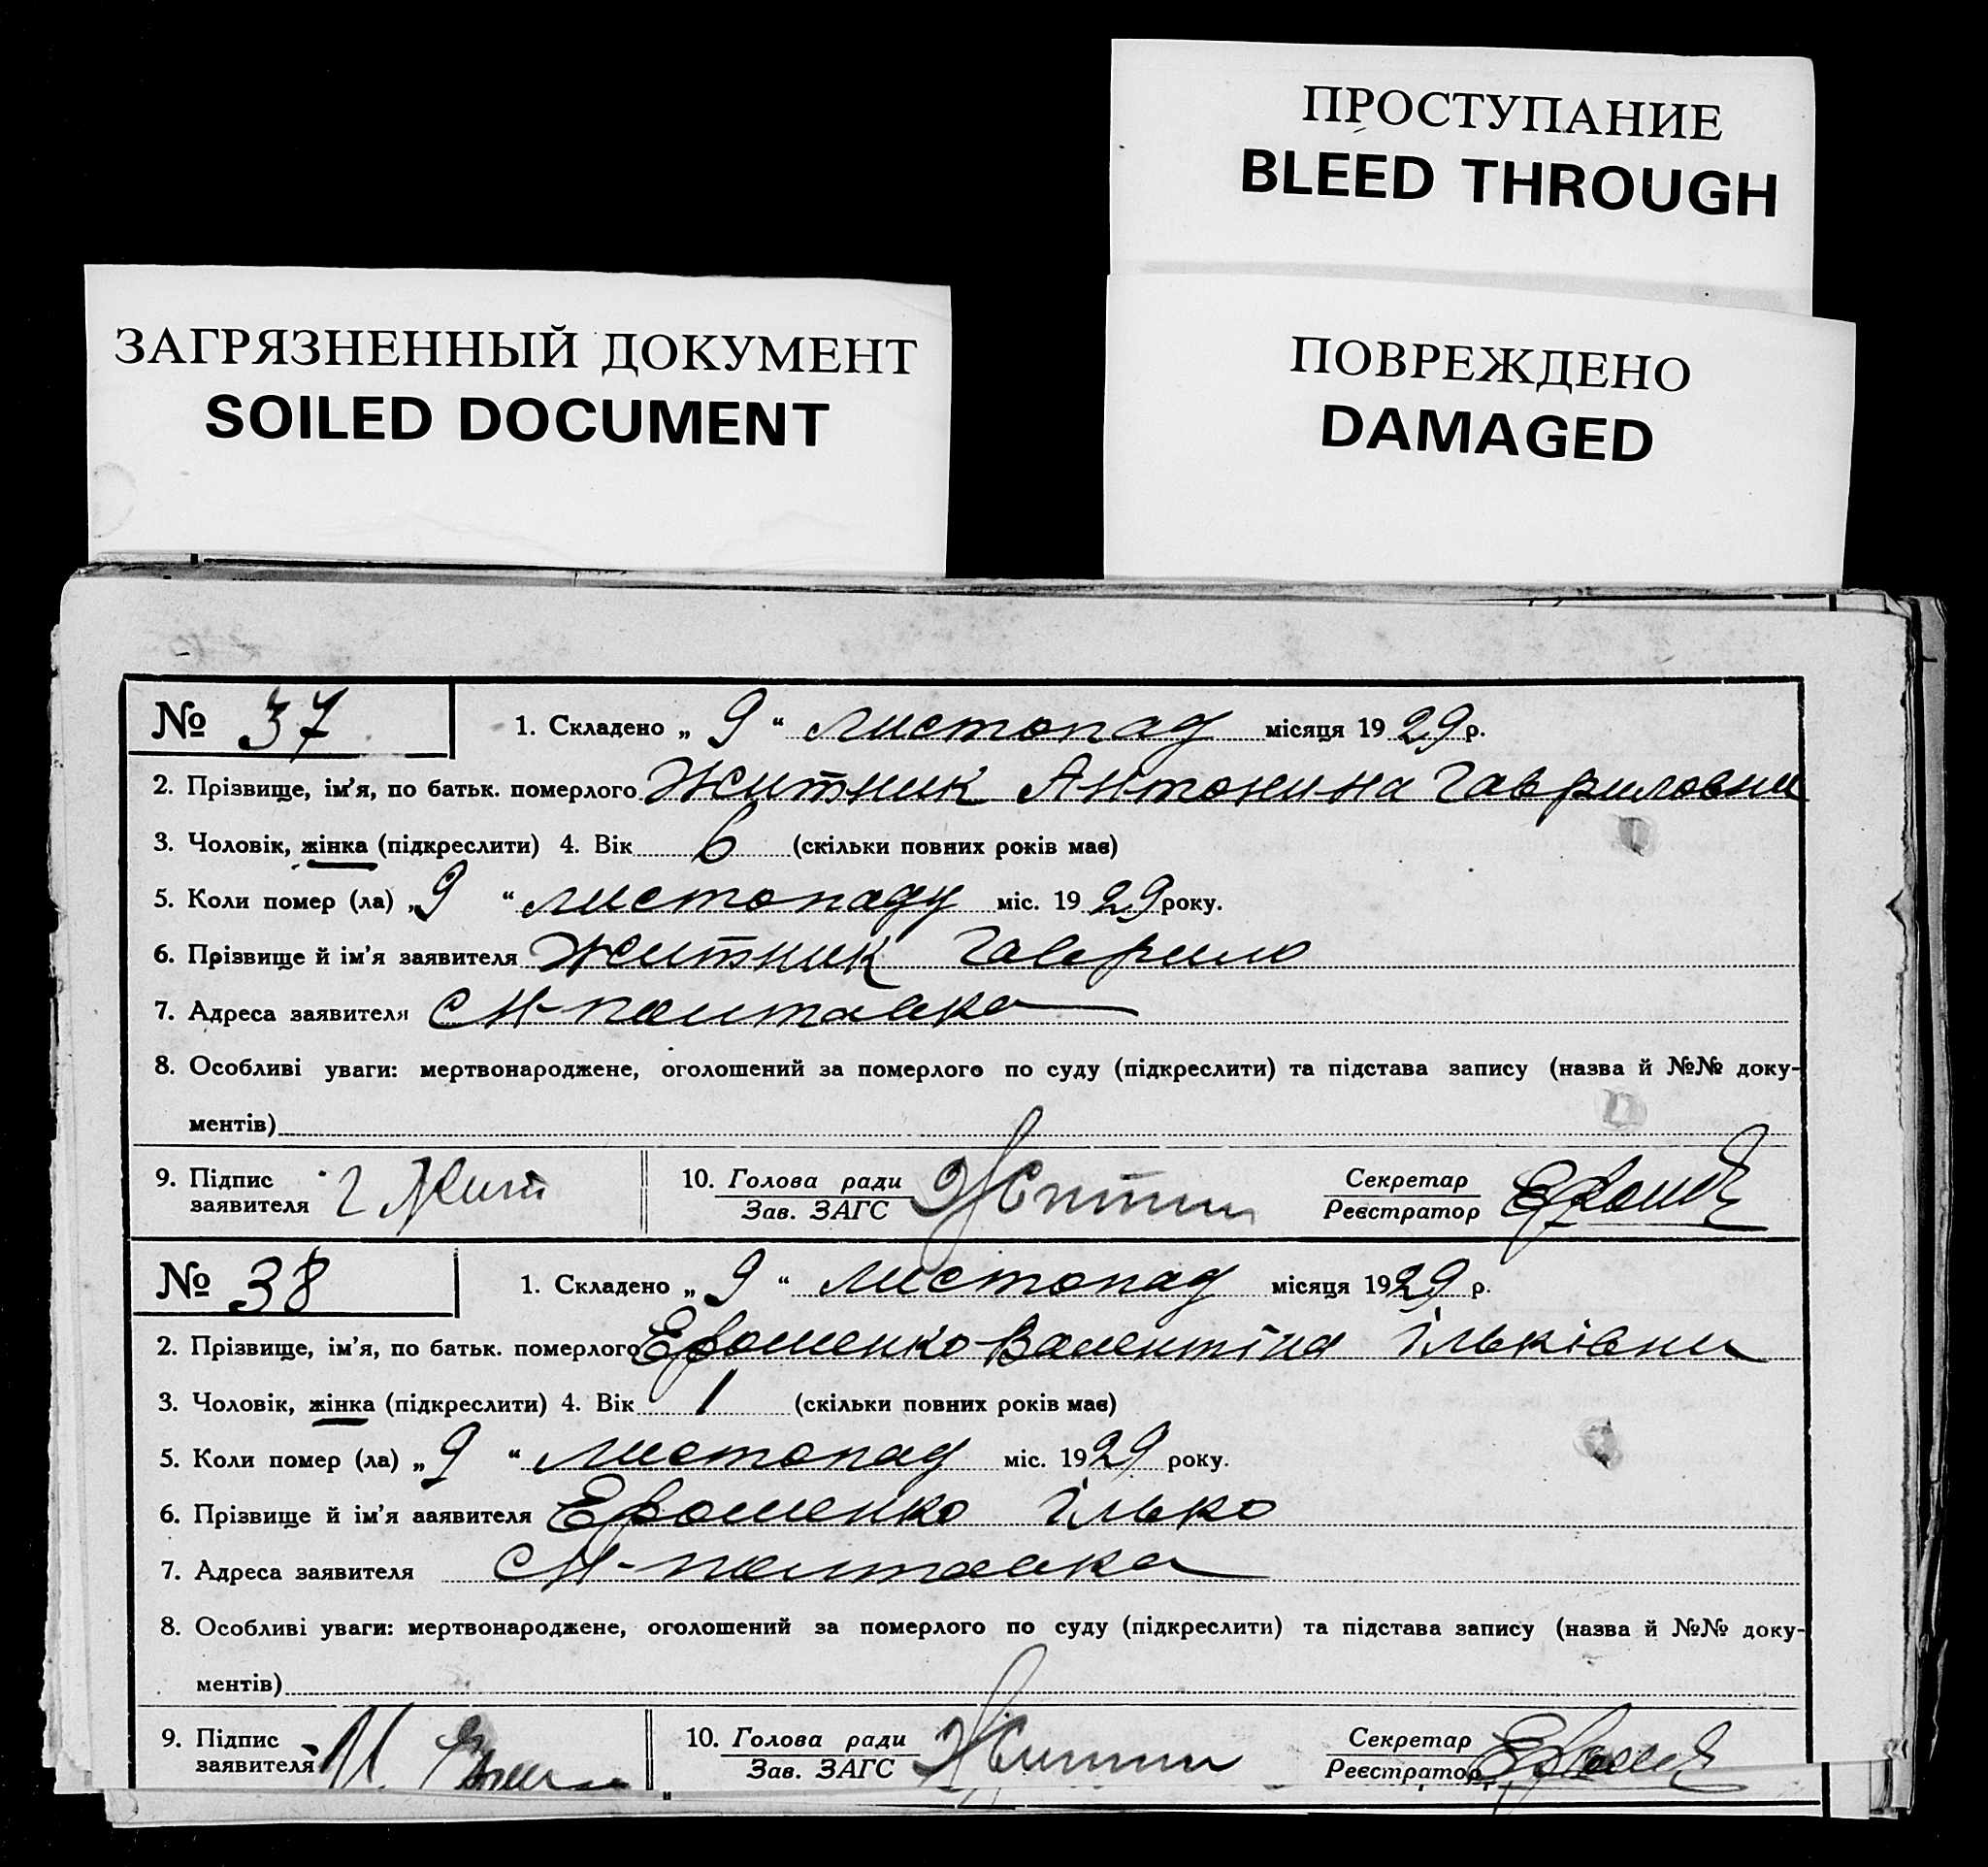 ПРОСТУПАНИЕ
BLEED THROUGH
ЗАГРЯЗНЕННЫЙ ДОКУМЕНТ
SOILED DOCUMENT
ПОВРЕЖДЕНО
DAMAGED
№ 37
1. Складено „ 9 “ листопад місяця 1929 р.
2. Прізвище, ім'я, по батьк. померлого Житник Антонина Гавриловни
3. Чоловік, жінка (підкреслити) 4. Вік 6 (скільки повних років має)
5. Коли помер (ла) „ 9 “ листопаду міс. 1929 року.
6. Прізвище й ім'я заявителя Житник Гаврило
7. Адреса заявителя с М-полтавка
8. Особливі уваги: мертвонароджене, оголошений за померлого по суду (підкреслити) та підстава запису (назва й №№ доку-
ментів)
9. Підпис заявителя Г Жит
10. Голова ради
Зав. ЗАГС
Секретар
Реєстратор
№ 38
1. Складено „ 9 “ листопад місяця 1929 р.
2. Прізвище, ім'я, по батьк. померлого Ерошенко Валентіна Ільківни
3. Чоловік, жінка (підкреслити) 4. Вік 1 (скільки повних років має)
5. Коли помер (ла) „ 9 “ листопад міс. 1929 року.
6. Прізвище й ім'я заявителя Ерошенко Ілько
7. Адреса заявителя с М-полтавка
8. Особливі уваги: мертвонароджене, оголошений за померлого по суду (підкреслити) та підстава запису (назва й №№ доку-
ментів)
9. Підпис заявителя
10. Голова ради
Зав. ЗАГС
Секретар
Реєстратор